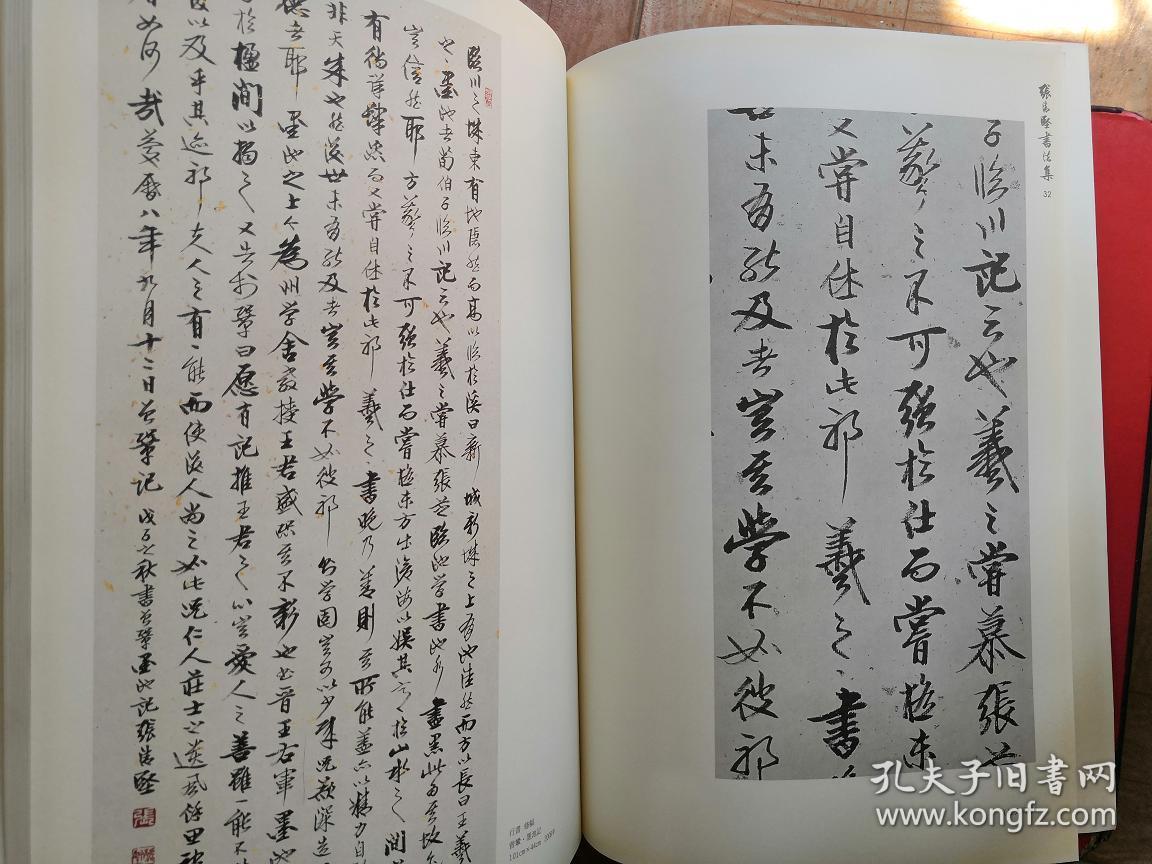 臨川之城東有地隱然而高以臨於溪曰新城新城之上有池洼然而方以長曰王羲
之之墨池者荀伯子臨川記云也羲之嘗慕張芝臨池學書池水盡黑此為其故
豈信然耶方羲之不可強於仕而嘗極東方出滄海以娛其意於山水之間
有徜徉肆恣而又嘗自休於此邪羲之之書晚乃善則其所能蓋亦以精力自
非天成也然後世未有能及者豈其學不如彼邪則学固豈可以少哉況欲深造
德者耶墨池之上今為州学舍教授王君盛恐其不彰也書晉王右軍墨池
於楹間以揭之又告於鞏曰愿有記推王君之心豈愛人之善雖一能不
以及乎其迹邪夫人之有一能而使後人尚之如此況仁人莊士之遺風餘思被
如何哉慶曆八年九月十二日曾鞏記 戊子之秋書曾鞏墨池記張浩堅
行書 條幅
曾鞏·墨池記
101cm×44cm 2009
張浩堅書法集
32
子臨川記云也羲之嘗慕張芝
羲之不可強於仕而嘗極東
又嘗自休於此邪羲之之書
未有能及者豈其學不如彼邪
孔夫子旧书网
www.kongfz.com